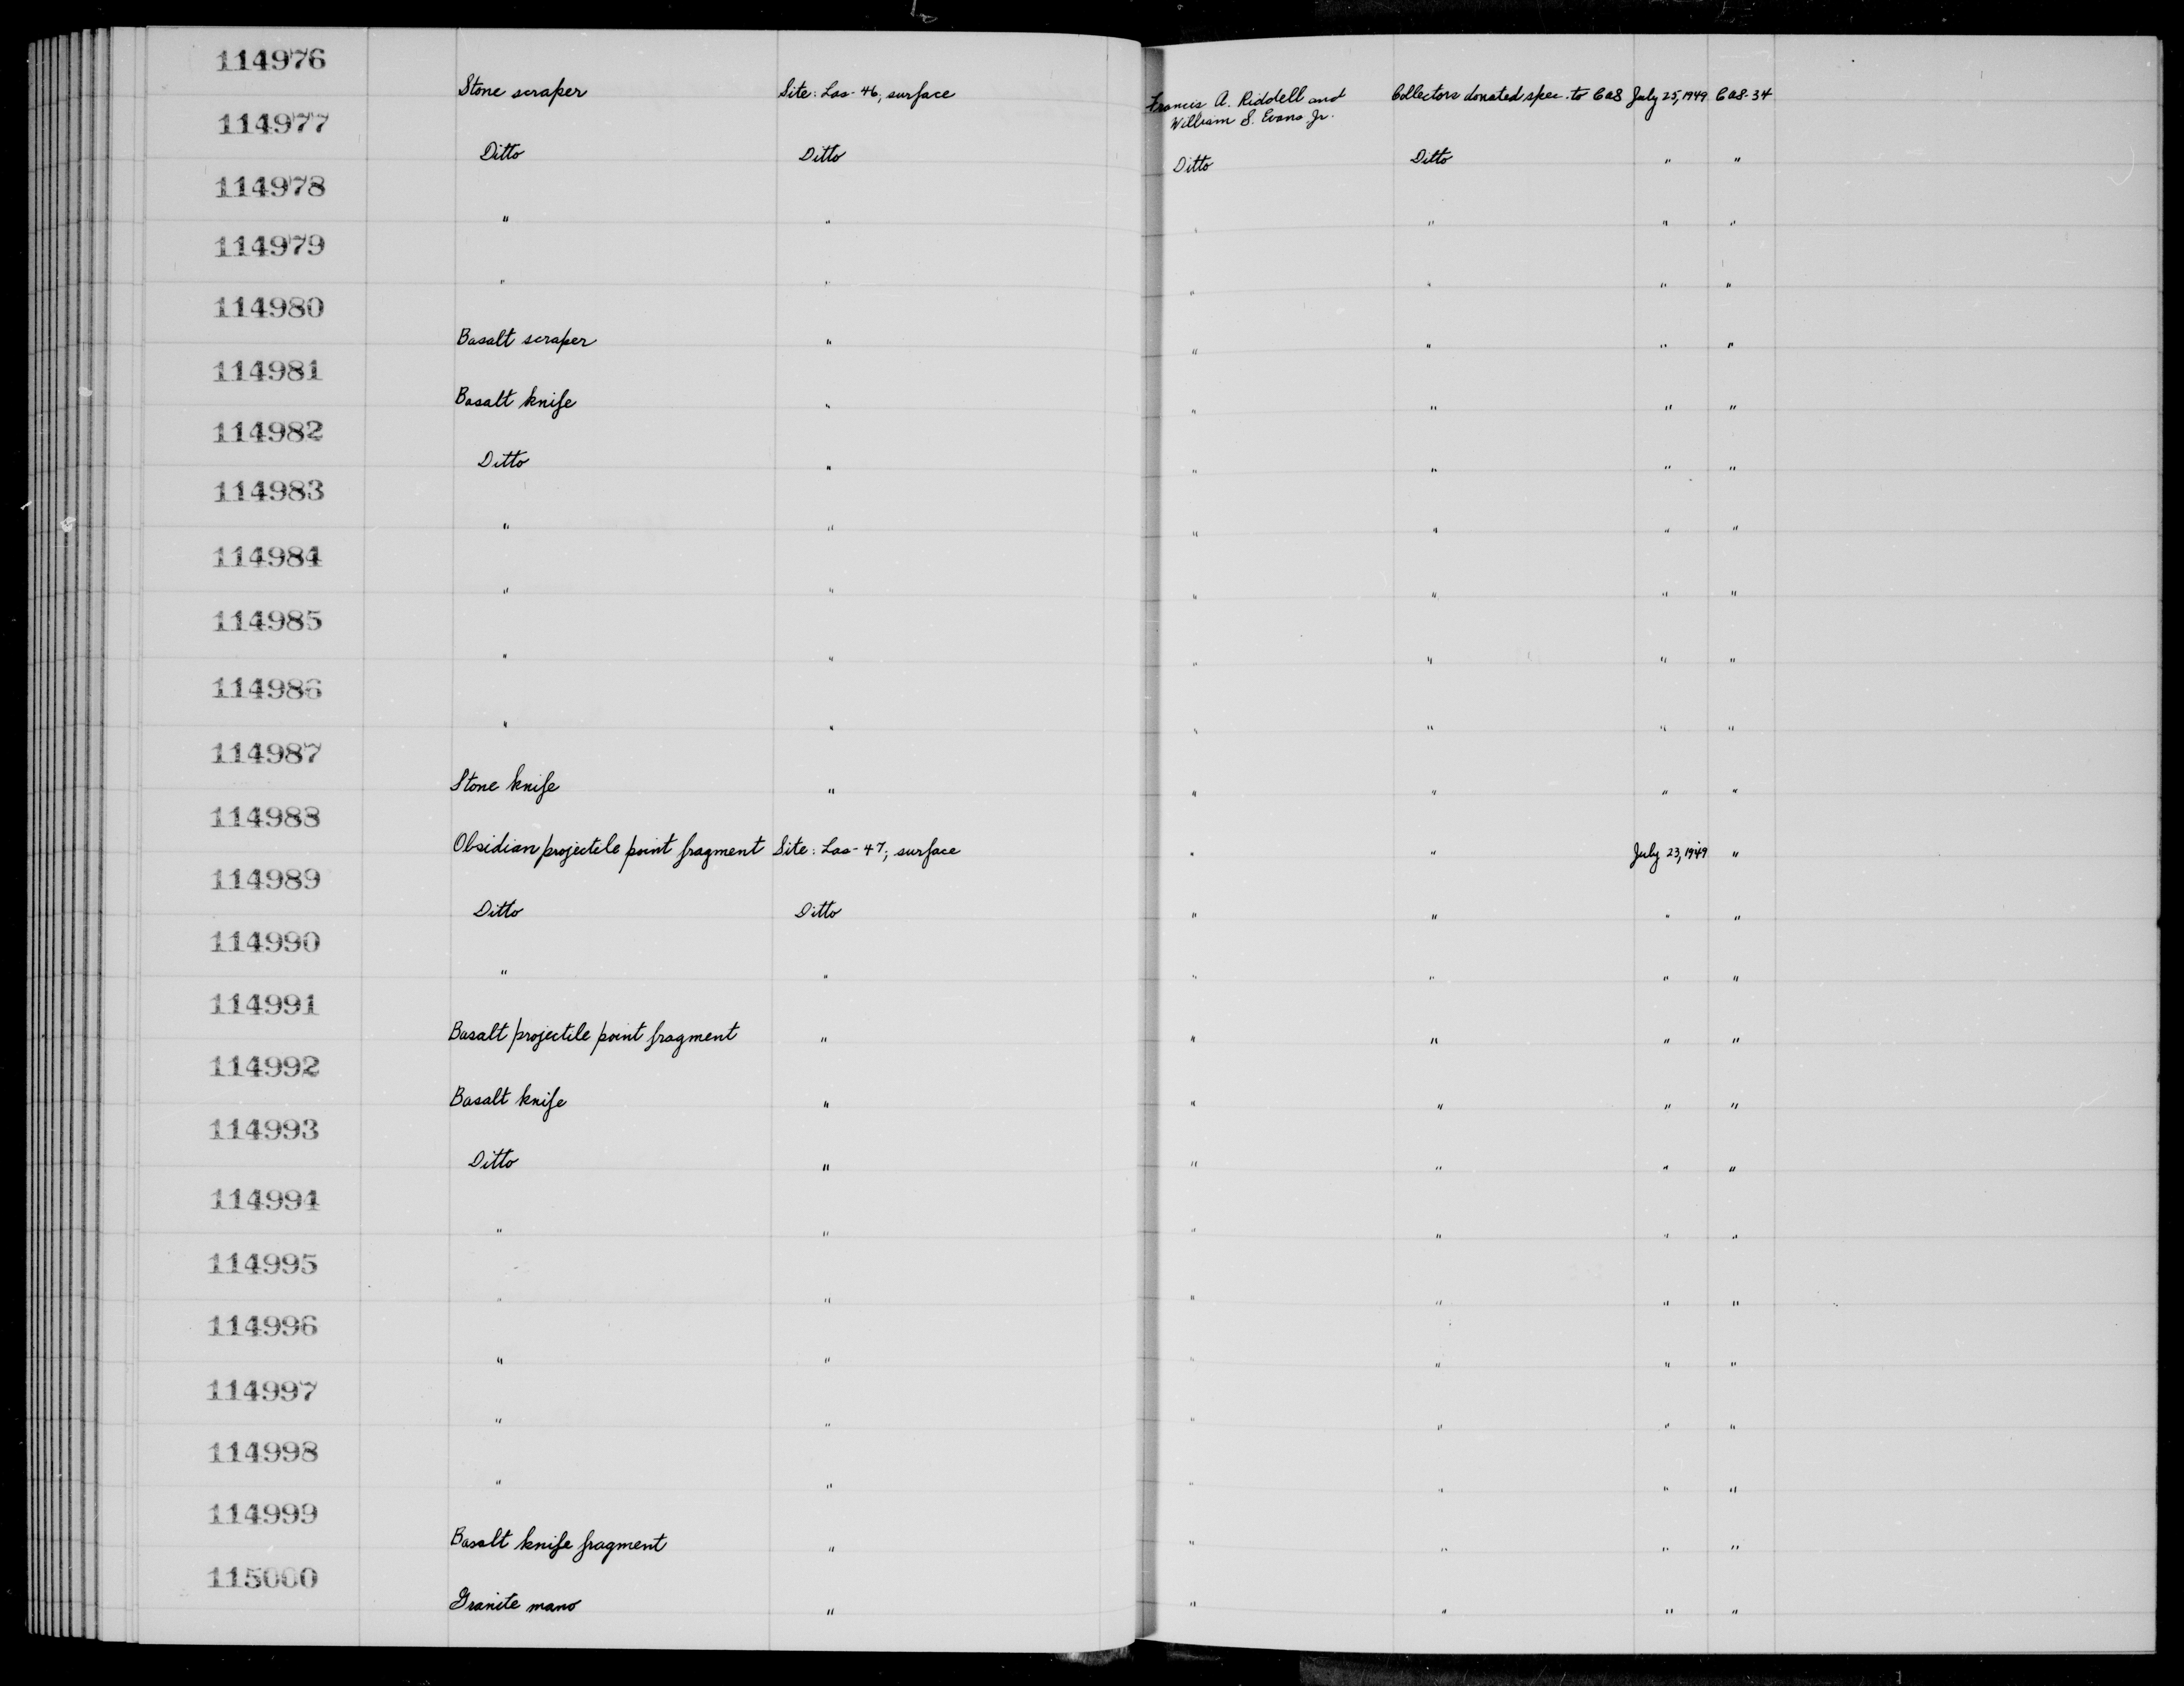 114976
Stone scraper Site: Las-46; surface Francis A. Riddell and Collectors donated spec. to CAS July 25, 1949 CAS-34
William S. Evans Jr.
114977
Ditto Ditto Ditto Ditto " "
114978
" " " " " "
114979
" " " " " "
114980
Basalt scraper " " " " "
114981
Basalt knife " " " " "
114982
Ditto " " " " "
114983
" " " " " "
114984
" " " " " "
114985
" " " " " "
114986
" " " " " "
114987
Stone knife " " " " "
114988
Obsidian projectile point fragment Site: Las-47; surface " " July 23, 1949 "
114989
Ditto Ditto " " " "
114990
" " " " " "
114991
Basalt projectile point fragment " " " " "
114992
Basalt knife " " " " "
114993
Ditto " " " " "
114994
" " " " " "
114995
" " " " " "
114996
" " " " " "
114997
" " " " " "
114998
" " " " " "
114999
Basalt knife fragment " " " " "
115000
Granite mano " " " " "